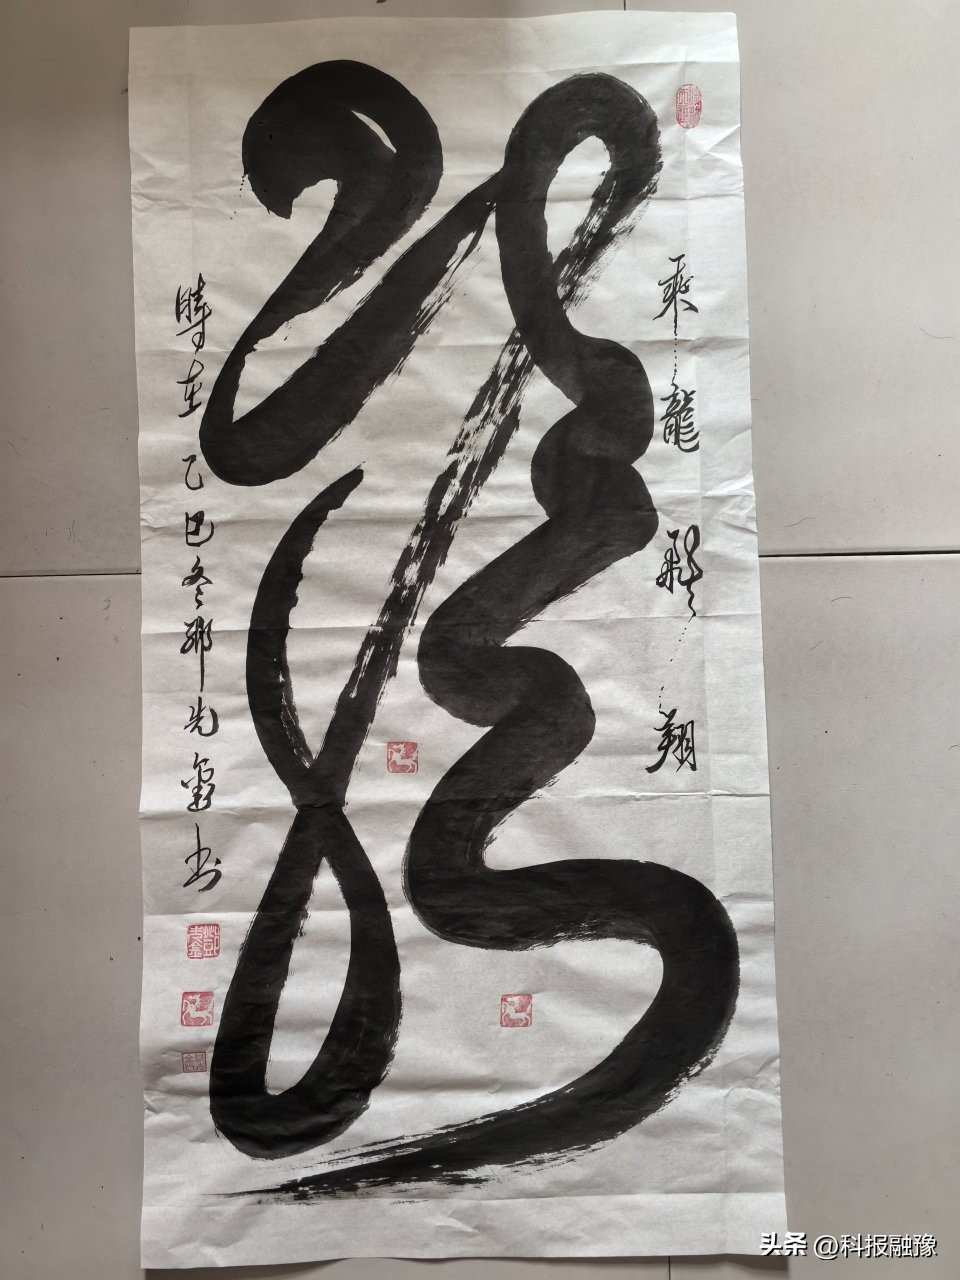 乘龍飛翔
龍
時在乙巳冬鄧先书
头条 @科报融豫